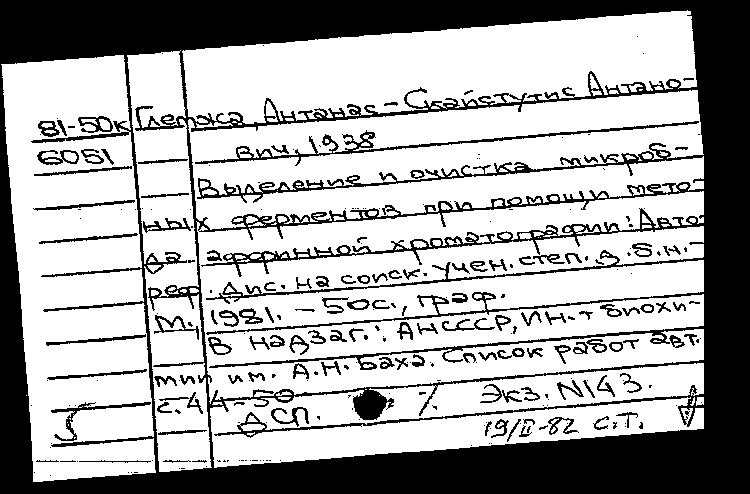 81-50к Глемжа, Антанас-Скайстутис Антано-
6051 вич, 1938
Выделение и очистка микроб-
ных ферментов при помощи мето-
да аффинной хроматографии: Авто-
реф. Дис. на соиск. учен. степ. д.б.н.-
М., 1981. - 50с., граф.
В надзаг.: АНСССР, Ин-т биохи-
мии им. А.Н. Баха. Список работ авт.
с. 44-50
ДСП. % Экз. N143.
19/II-82 С.Т.